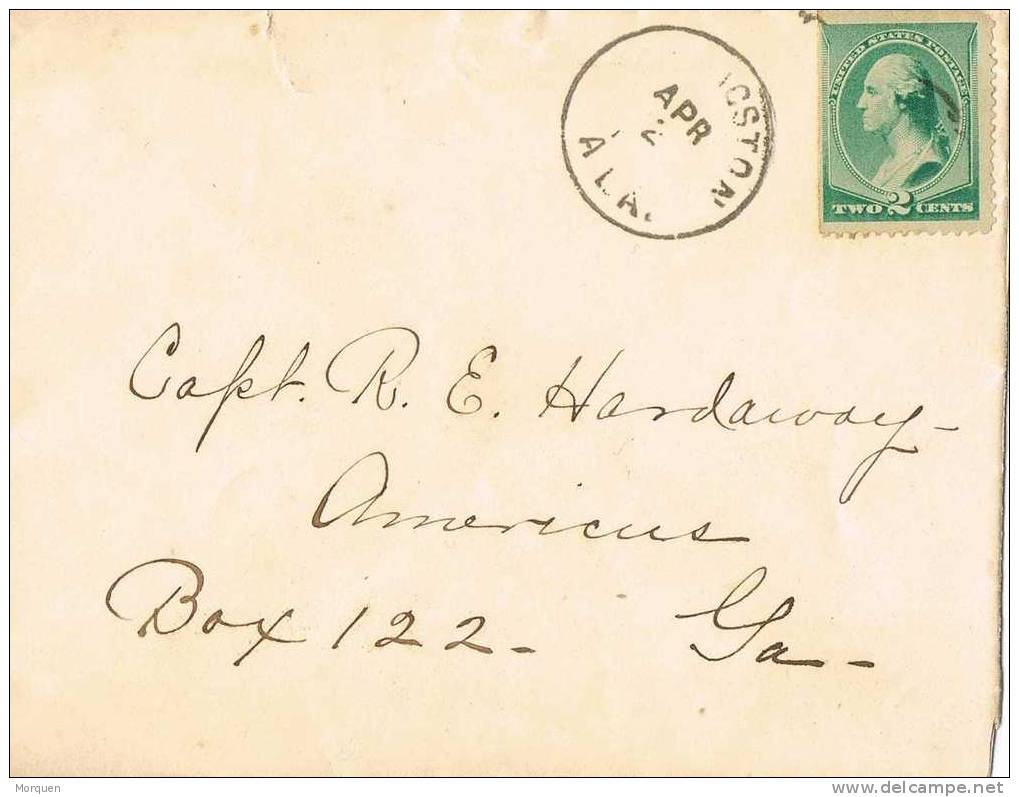 UNITED STATES POSTAGE
TWO 2 CENTS
APR
2
ALA.
Capt. R. E. Hardaway-
Americus
Box 122- Ga-
Morquen
delcampe.net